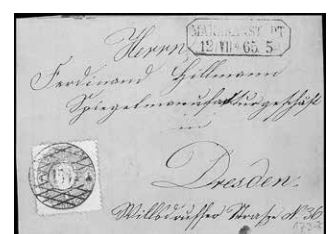 MARIENST. PT
12 VII 65 5
Herrn
Ferdinand Hillmann
Spiegelmanufakturgeschäft
in
Dresden.
Wilsdruffer Straße № 36